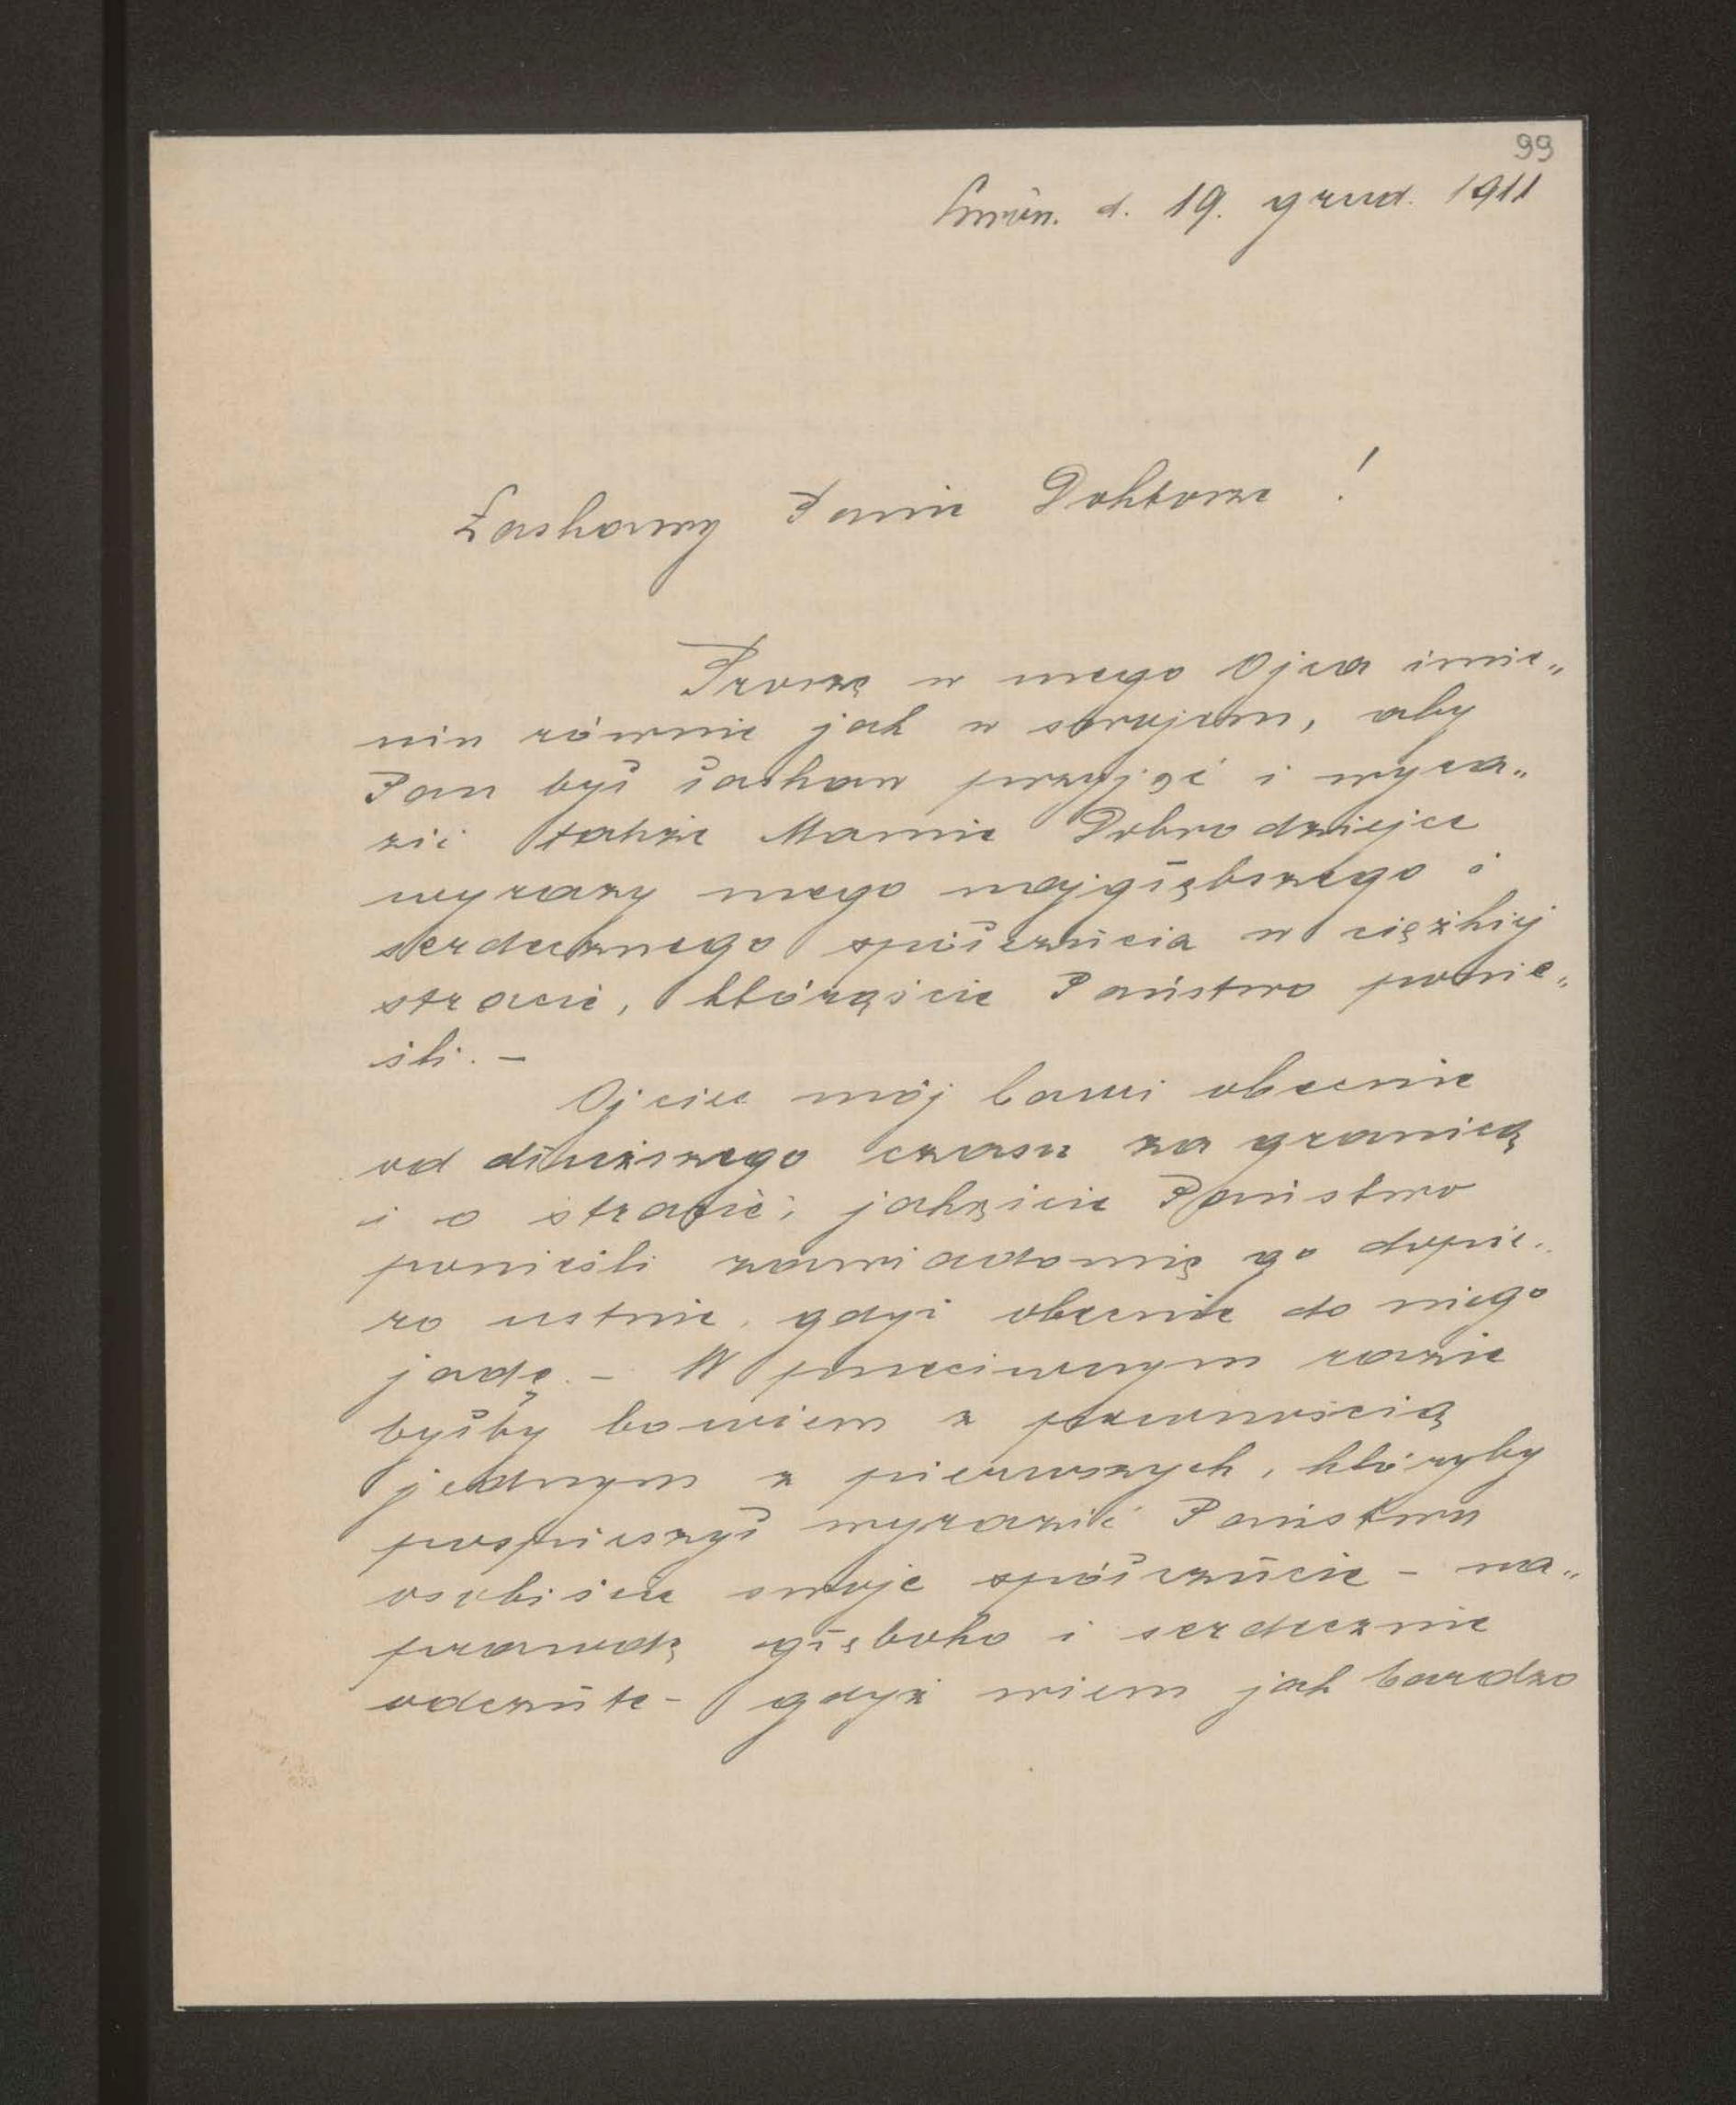 99
d. 19. grud. 1911
Łaskawy Panie Doktorze!
Proszę w mego Ojca imie„
niu równie jak w swojem, aby
Pan był łaskaw przyjąć i wyra„
zić także Mamie Dobrodziejce
wyrazy mego najgłębszego i
serdecznego spółczucia w ciężkiej
stracie, którąście Państwo ponie„
śli. –
Ojciec mój bawi obecnie
od dłuższego czasu za granicą
i o stracie, jakąście Państwo
ponieśli zawiadomię go dopie„
ro ustnie, gdyż obecnie do niego
jadę. – W przeciwnym razie
byłby bowiem z pewnością
jednym z pierwszych, któryby
pospieszył wyrazić Państwu
osobiście swoje spółczucie – na„
prawdę głęboko i serdecznie
odczute – gdyż wiem jak bardzo